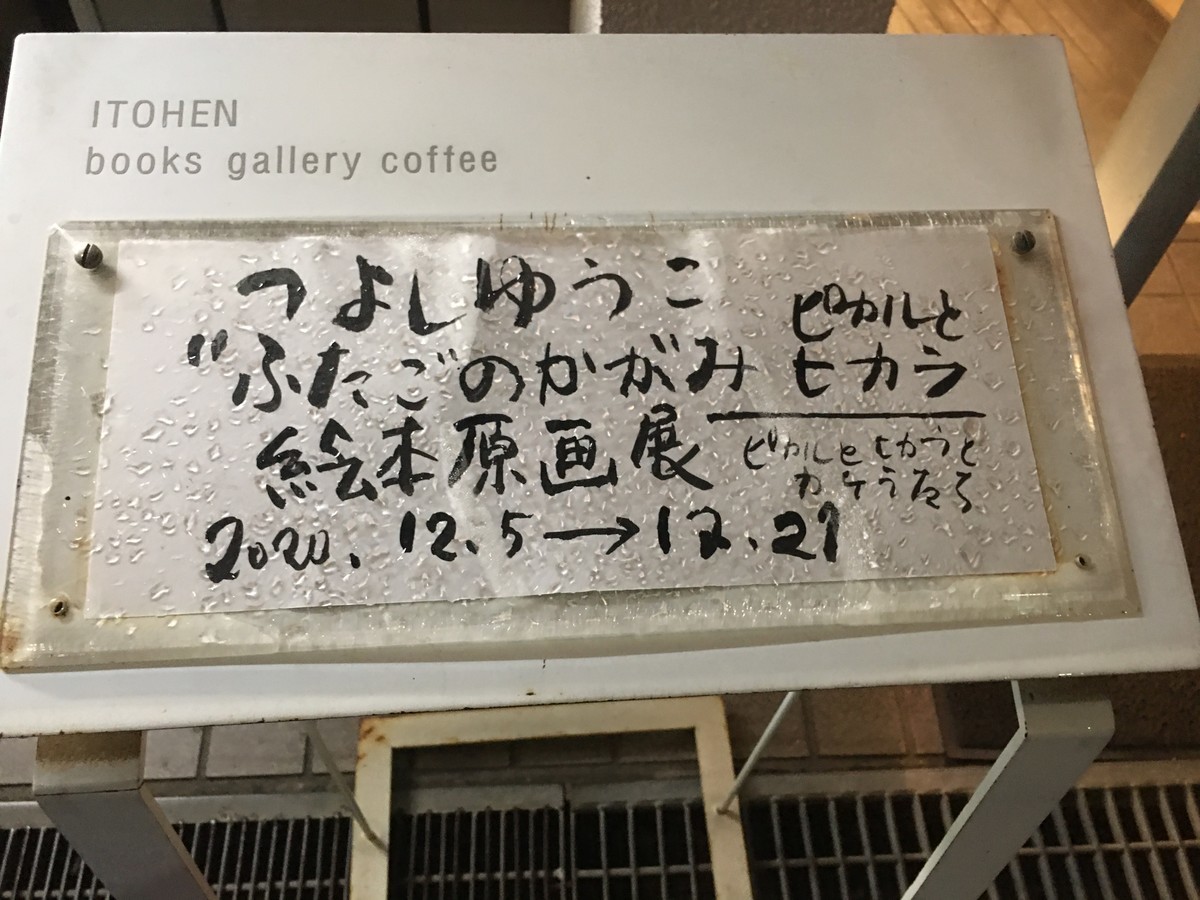 ITOHEN
books gallery coffee
つよしゆうこ
"ふたごのかがみ ピカルと
ヒカラ
絵本原画展
ピカルとヒカラと
カケラたち
2020. 12.5→12.21